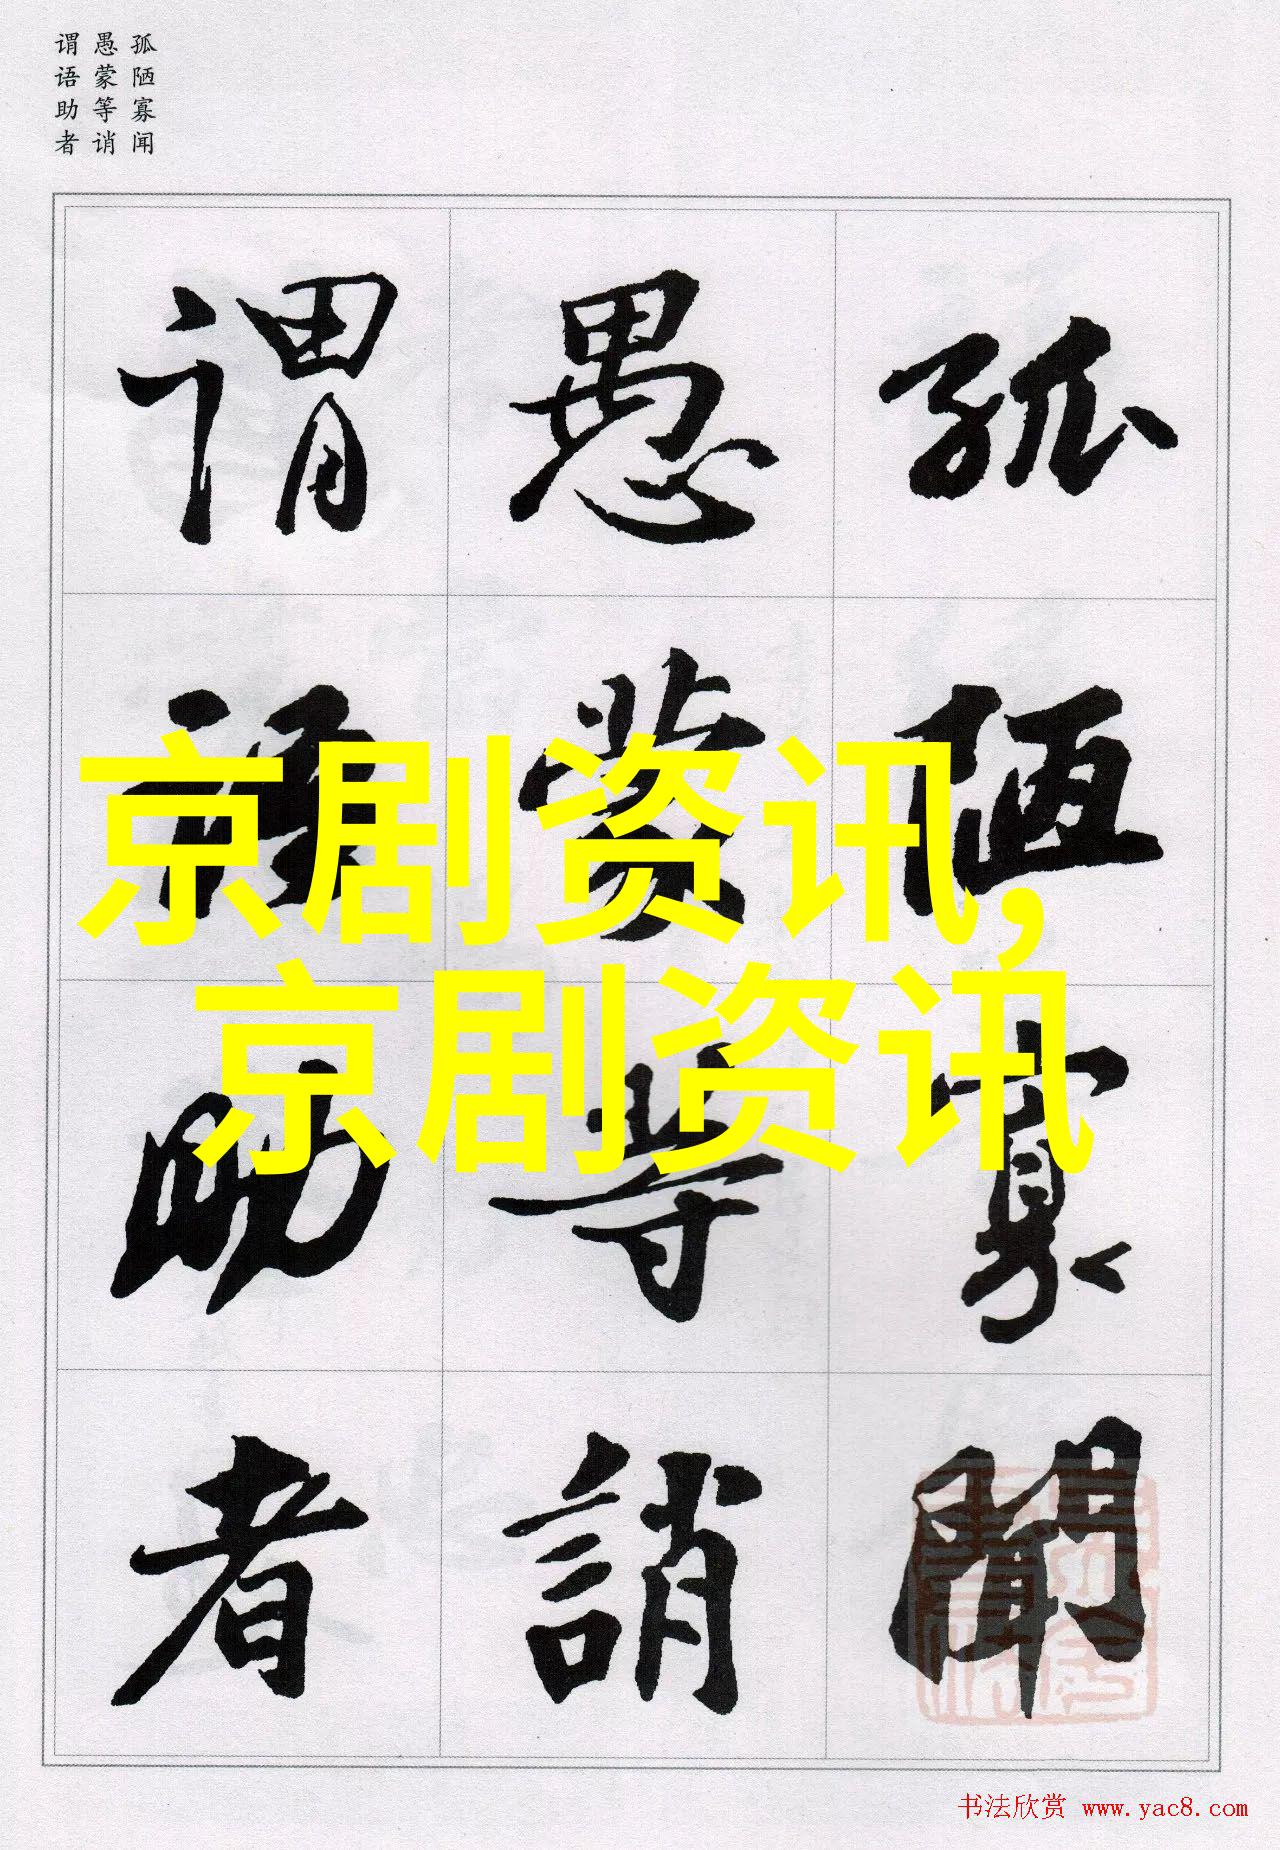 孤陋寡闻
愚蒙等诮
谓语助者
孤陋寡聞
愚蒙等誚
谓語助者
京剧资讯,
京剧资讯
书法欣赏 www.yac8.com